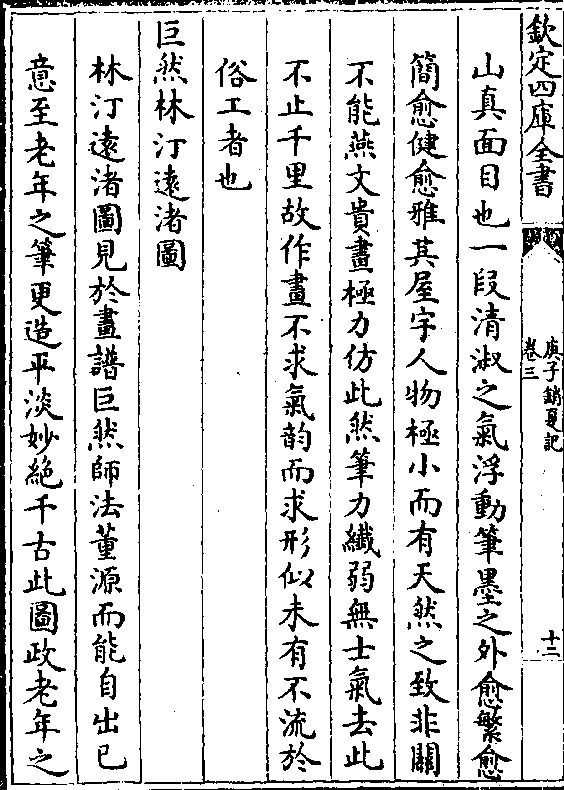 欽定四庫全書
庚子銷夏記
卷三
十二
山真面目也一段清淑之氣浮動筆墨之外愈繁愈
簡愈健愈雅其屋宇人物極小而有天然之致非關
不能燕文貴畫極力仿此然筆力纖弱無士氣去此
不止千里故作畫不求氣韵而求形似未有不流於
俗工者也
巨然林汀遠渚圖
林汀遠渚圖見於畫譜巨然師法董源而能自出已
意至老年之筆更造平淡妙絶千古此圖政老年之